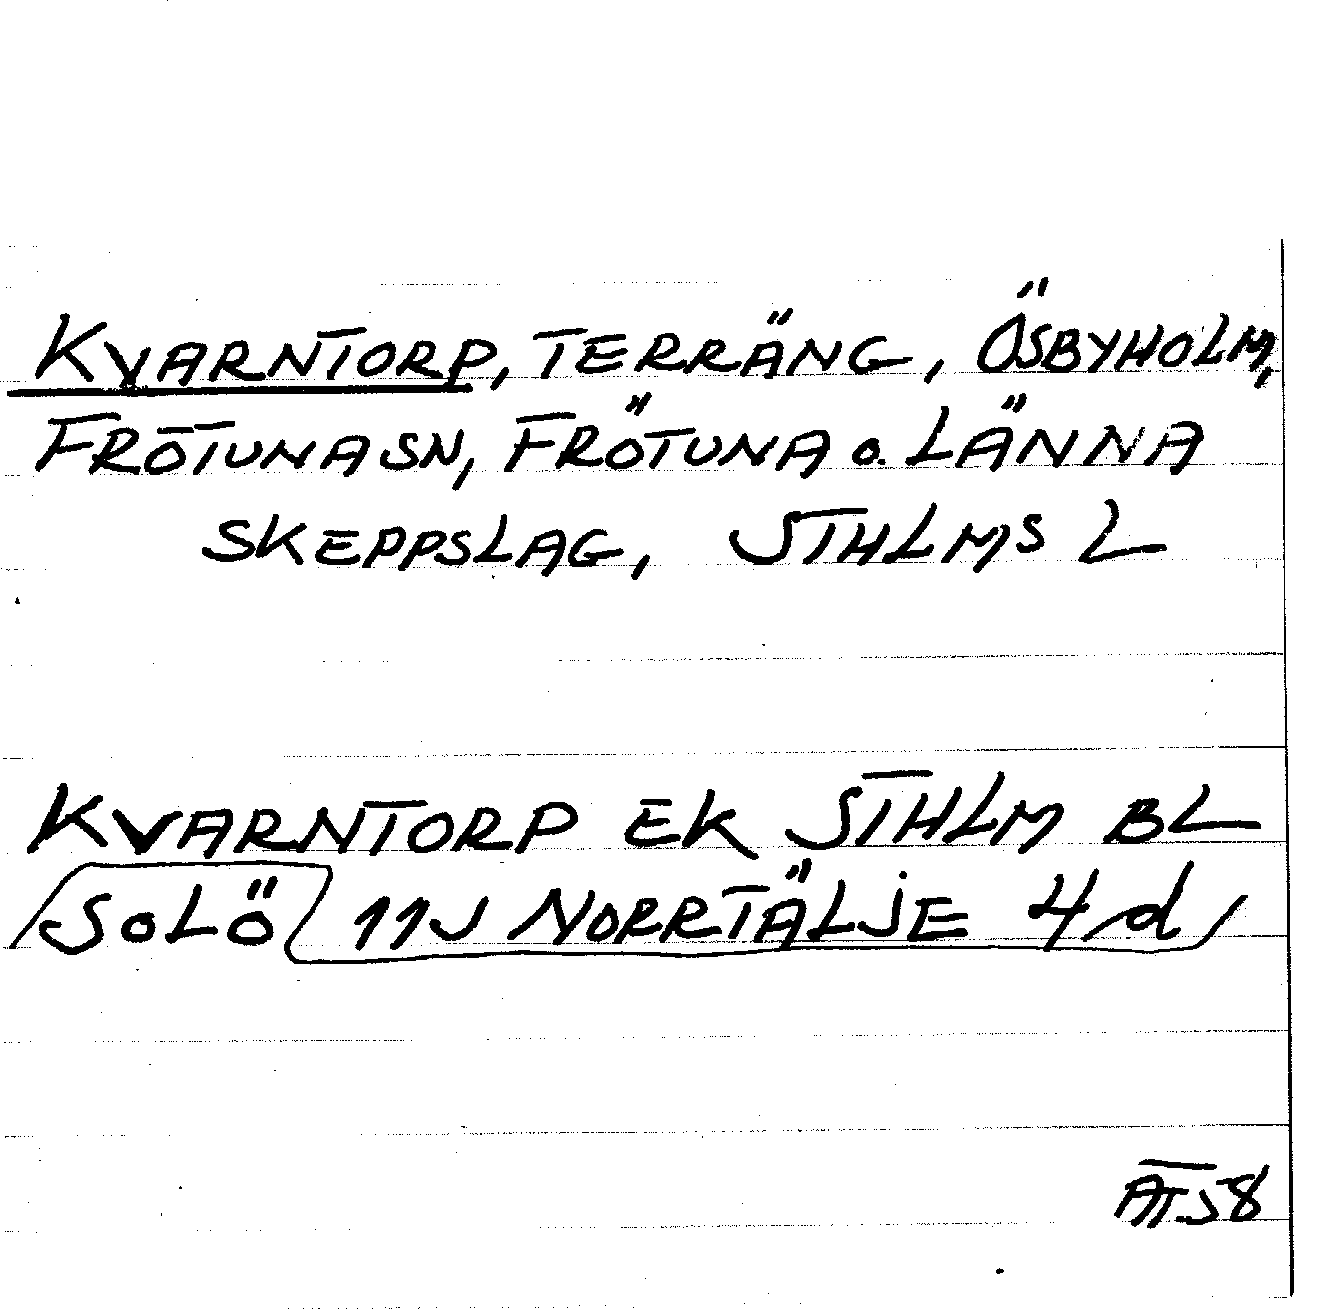 KVARNTORP, TERRÄNG, ÖSBYHOLM,
FRÖTUNA SN, FRÖTUNA o. LÄNNA
SKEPPSLAG, STHLMS L
KVARNTORP EK STHLM BL
SOLÖ 11J NORRTÄLJE 4d
AT58